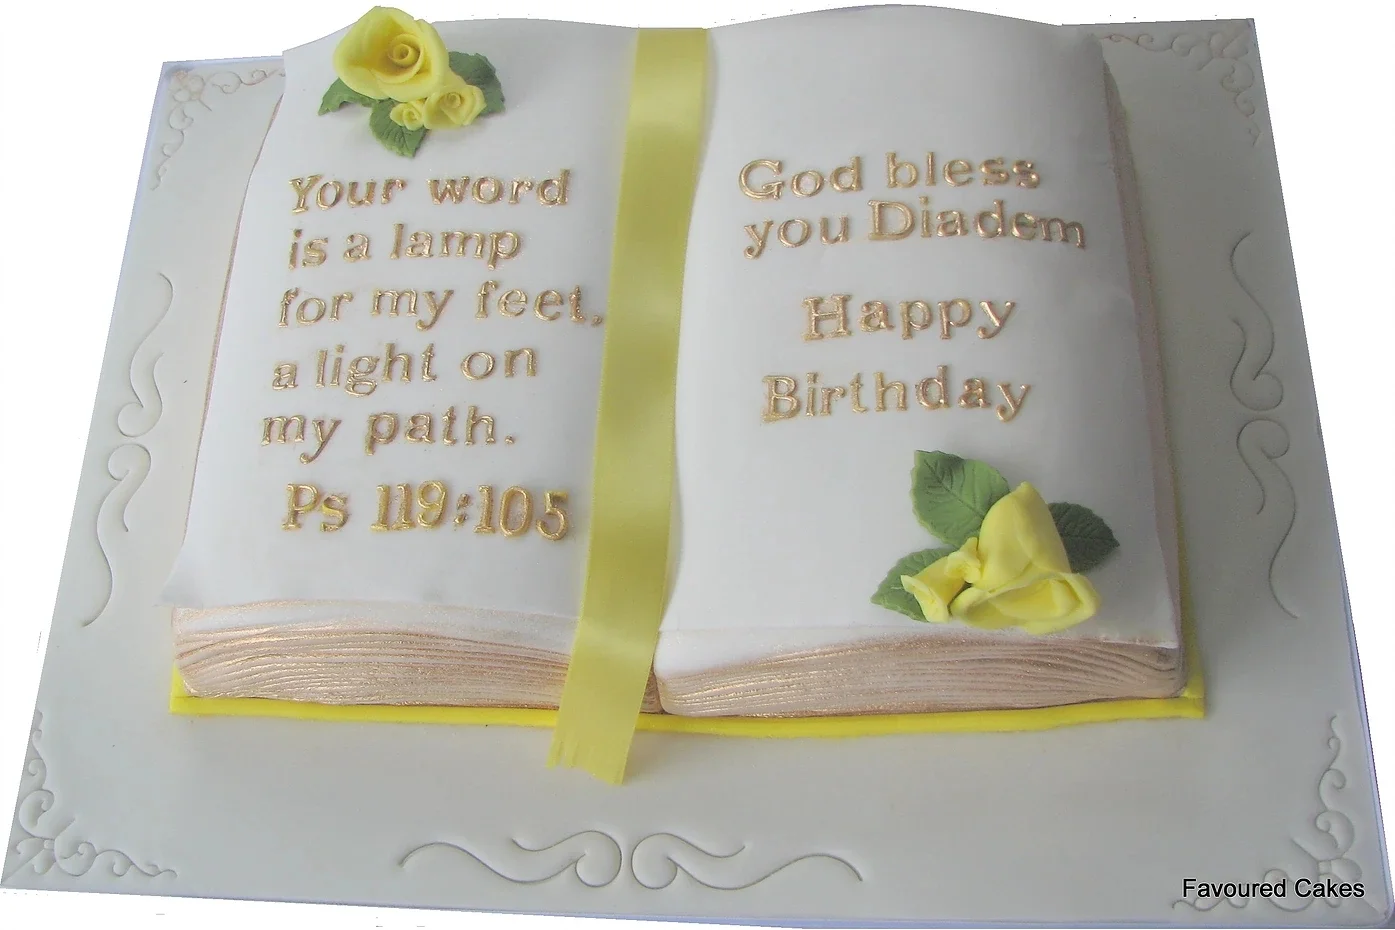 Your word
is a lamp
for my feet,
a light on
my path.
Ps 119:105
God bless
you Diadem
Happy
Birthday
Favoured Cakes